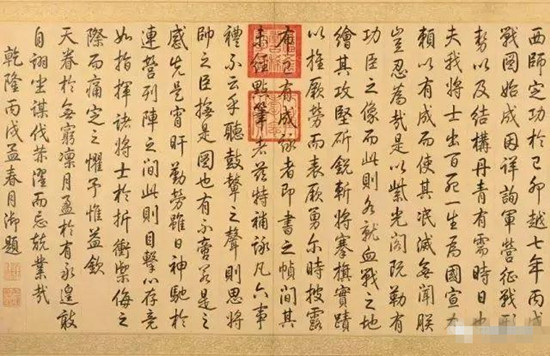 西師定功於己卯越七年丙戌
戰圖始成因詳詢軍營征戰形
勢以及結構丹青有需時日也
夫我將士出百死一生為國宣力
賴以有成而使其泯滅無聞朕
豈忍為哉是以紫光閣既勒有
功臣之像而此則各就血戰之地
繪其攻堅斫銳斬將搴旗實蹟
以旌厥勞而表厥勇爾時披露
布之有成詠者即書之幀間其
未經點筆者茲特補詠凡六事
禮不云乎聽鼓鼙之聲則思將
帥之臣撫是圖也有不啻若是之
感先是宵旰勤勞雖日神馳於
連營列陣之間此則目擊心存竟
如指揮諸將士於折衝禦侮之
際而痛定之懼予惟益欽
天眷於無窮凜月盈於有永遑敢
自詡坐謀伐 而忘兢業哉
乾隆丙戌孟春月御題